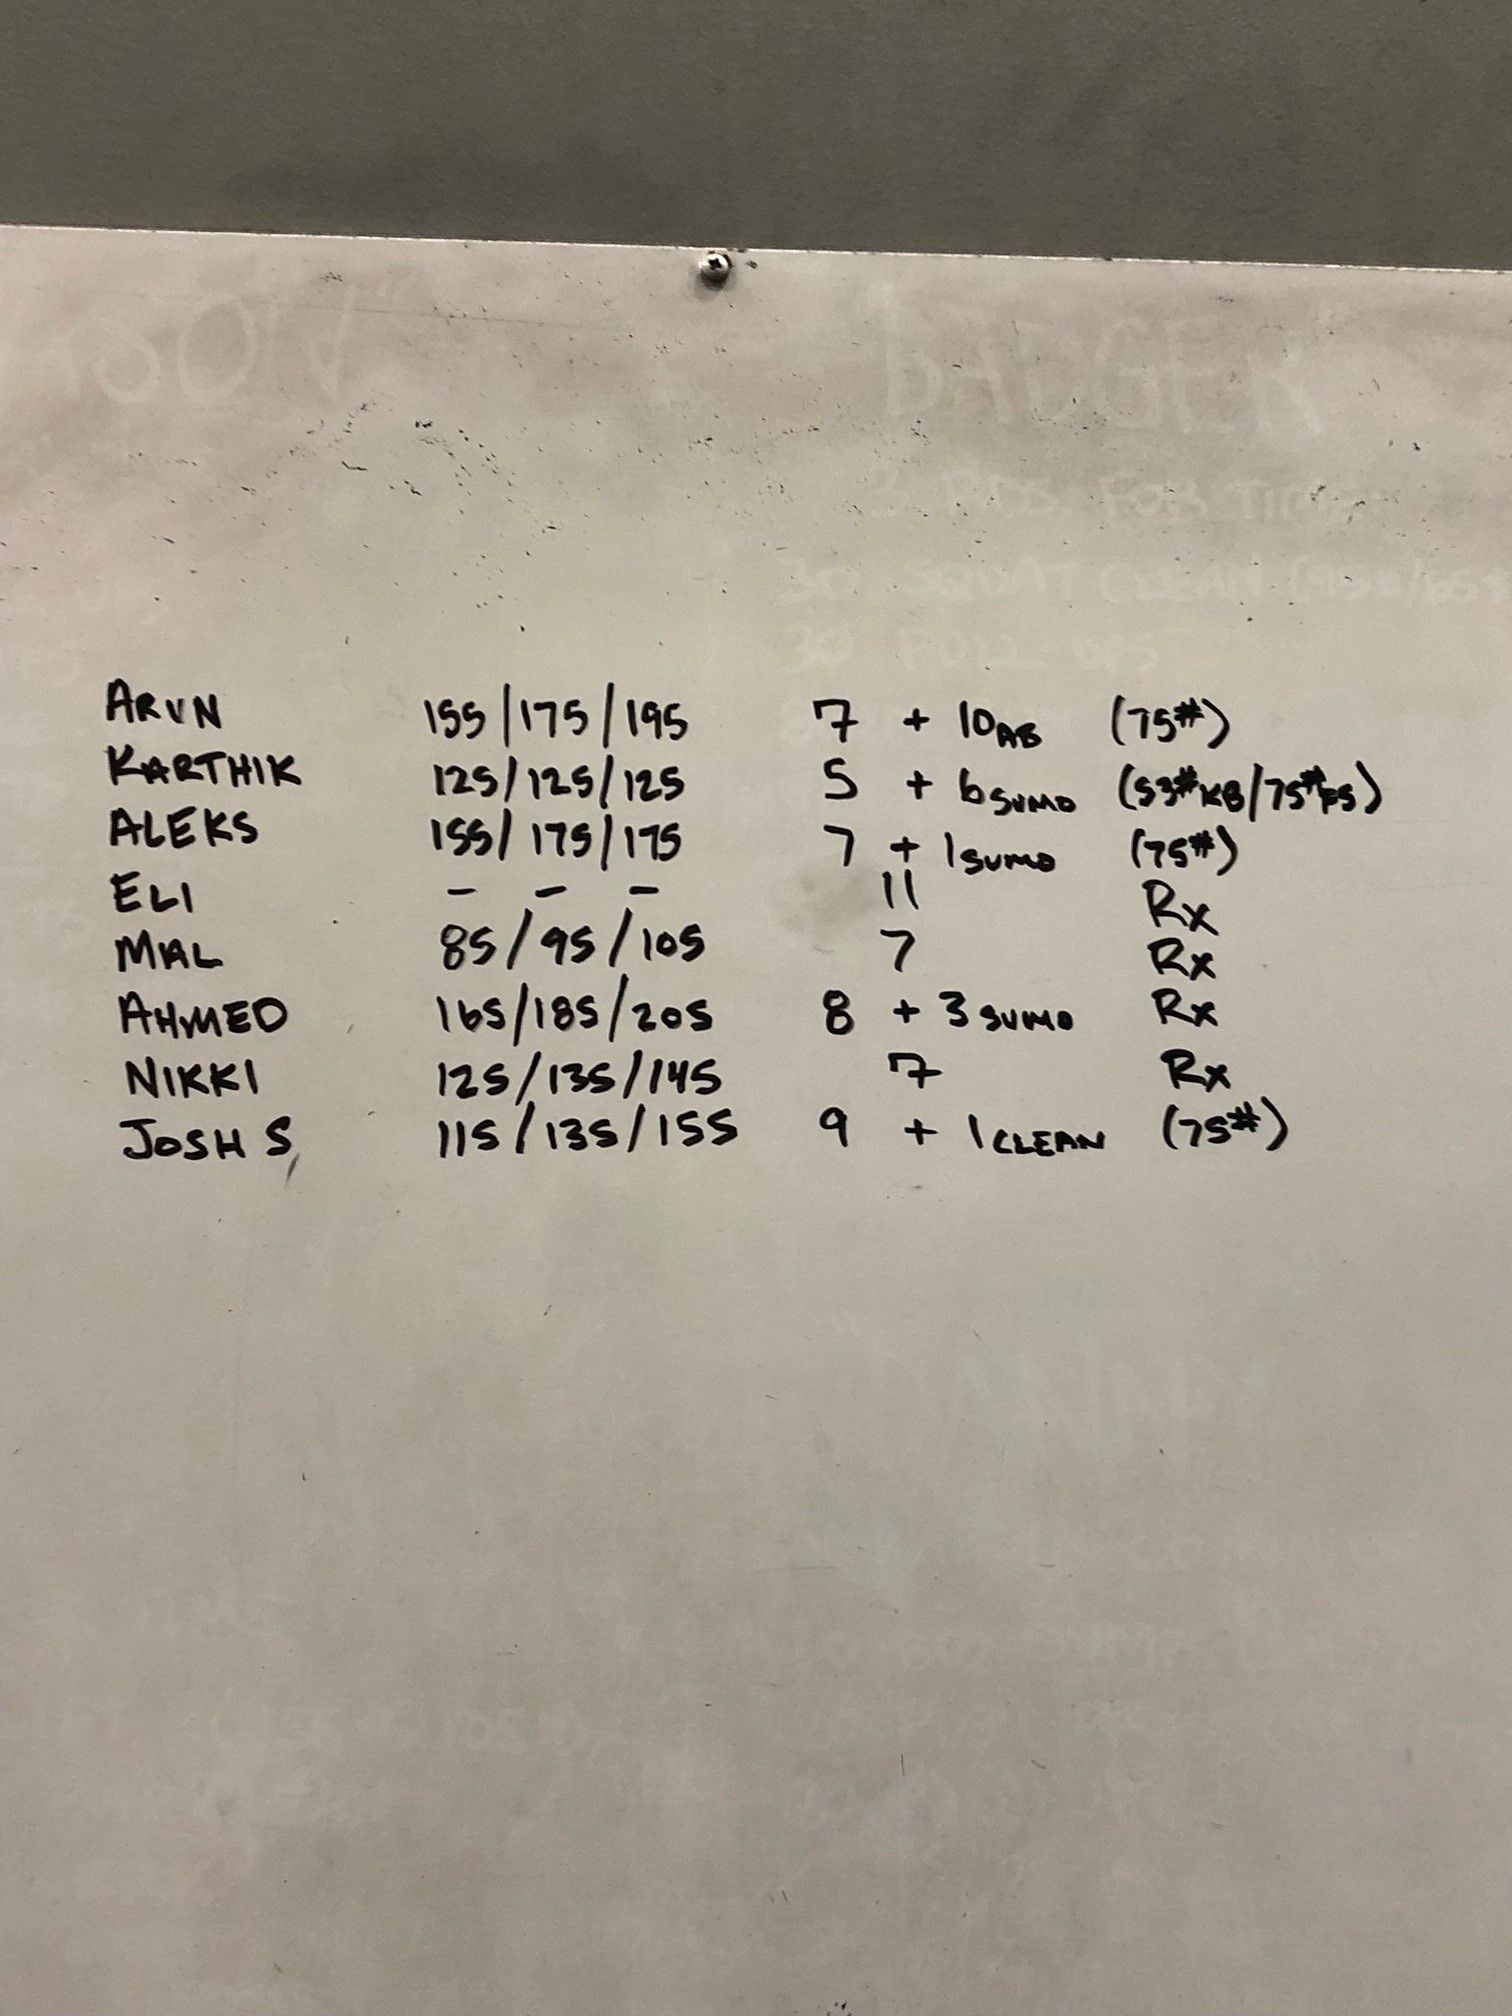 BADGER
3 RDS FOR TIME
30 SQUAT CLEAN
30 PULL-UPS
ARUN 155/175/195 7 + 10AB (75#)
KARTHIK 125/125/125 5 + 6SUMO (53#KB/75#FS)
ALEKS 155/175/175 7 + 1SUMO (75#)
ELI - - - 11 Rx
MAL 85/95/105 7 Rx
AHMED 165/185/205 8 + 3SUMO Rx
NIKKI 125/135/145 7 Rx
JOSH S 115/135/155 9 + 1CLEAN (75#)